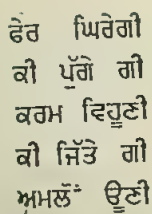 ਫੇਰ ਘਿਰੇਗੀ
ਕੀ ਪੁੱਗੇ ਗੀ
ਕਰਮ ਵਿਹੂਣੀ
ਕੀ ਜਿੱਤੇ ਗੀ
ਅਮਲੋਂ ਊਣੀ